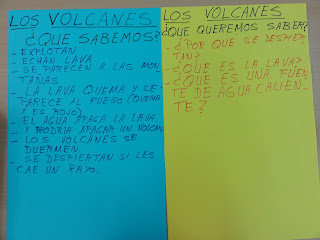 LOS VOLCANES
¿QUE SABEMOS?
- EXPLOTAN
- ECHAN LAVA
- SE PARECEN A LAS MON
TAÑAS
- LA LAVA QUEMA Y SE
PARECE AL FUEGO (QUEMA
Y ES ROJO)
- EL AGUA APAGA LA LAVA
Y PODRIA APAGAR UN VOLCAN
- LOS VOLCANES SE
DUERMEN.
- SE DESPIERTAN SI LES
CAE UN RAYO.
LOS VOLCANES
¿QUE QUEREMOS SABER?
- ¿POR QUE SE DESPIER
TAN?
- ¿QUE ES LA LAVA?
- ¿QUE ES UNA FUEN
TE DE AGUA CALIEN
TE?